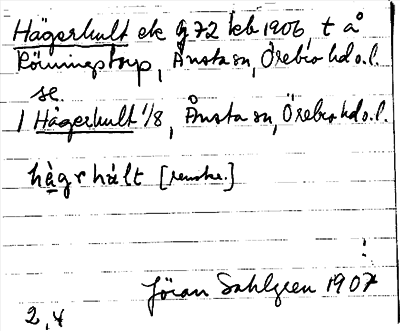 Hägerhult ek g 72 kb 1906, t å
Rönningstorp, Ånsta sn, Örebro hd o.l.
se
1 Hägerhult 1/8, Ånsta sn, Örebro hd o.l.
hàgrhält
Jöran Sahlgren 1907
2,4